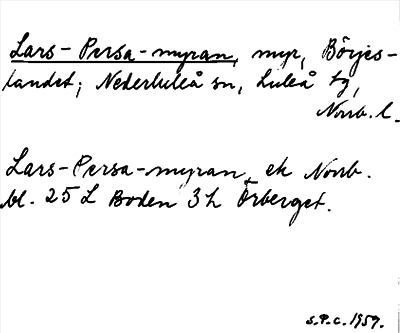 Lars-Persa-myran, myr, Börjes-
landet; Nederluleå sn, Luleå tg,
Norrb. l.
Lars-Persa-myran, ek Norrb.
bl. 25 L Boden 3 h Örberget.
S.P.C. 1959.